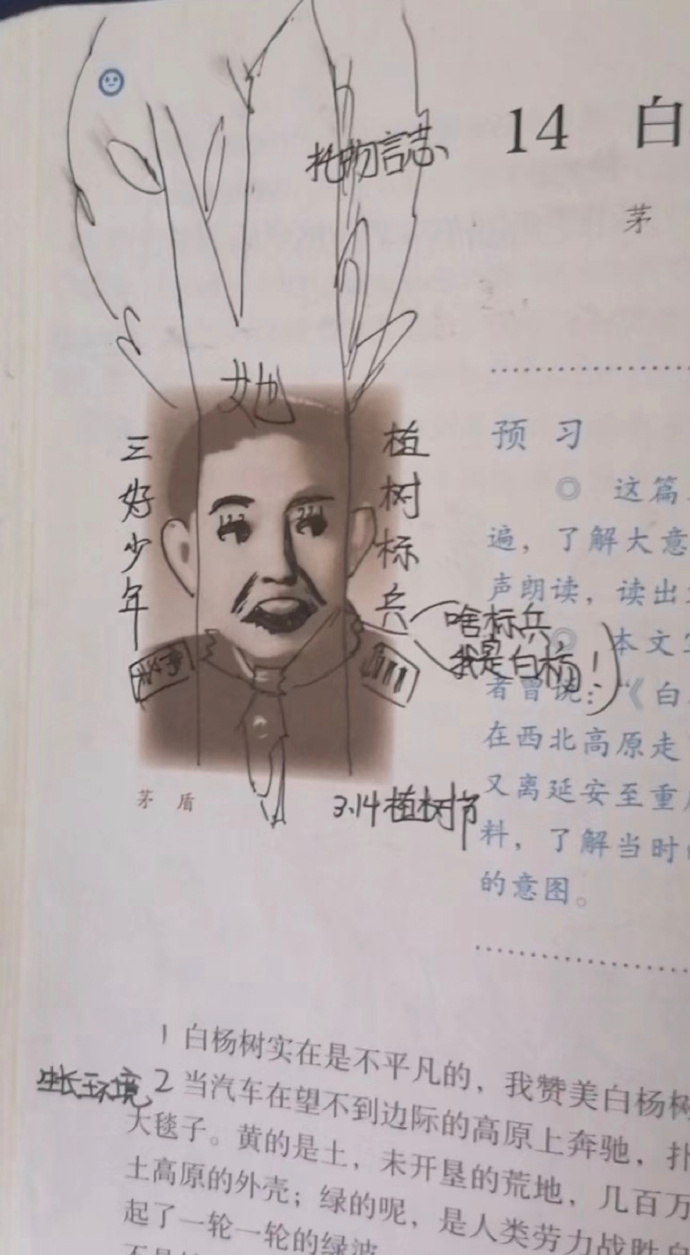 托物言志
14 白
茅
她
三好少年
植树标兵
啥标兵
我是白杨!
预 习
◎ 这篇
遍，了解大意
声朗读，读出
◎ 本文
者曾说：“《白
在西北高原走
又离延安至重
料，了解当时
的意图。
茅 盾
3.14植树节
1 白杨树实在是不平凡的，我赞美白杨树
生长环境
2 当汽车在望不到边际的高原上奔驰，扑
大毯子。黄的是土，未开垦的荒地，几百万
土高原的外壳；绿的呢，是人类劳力战胜自
起了一轮一轮的绿波